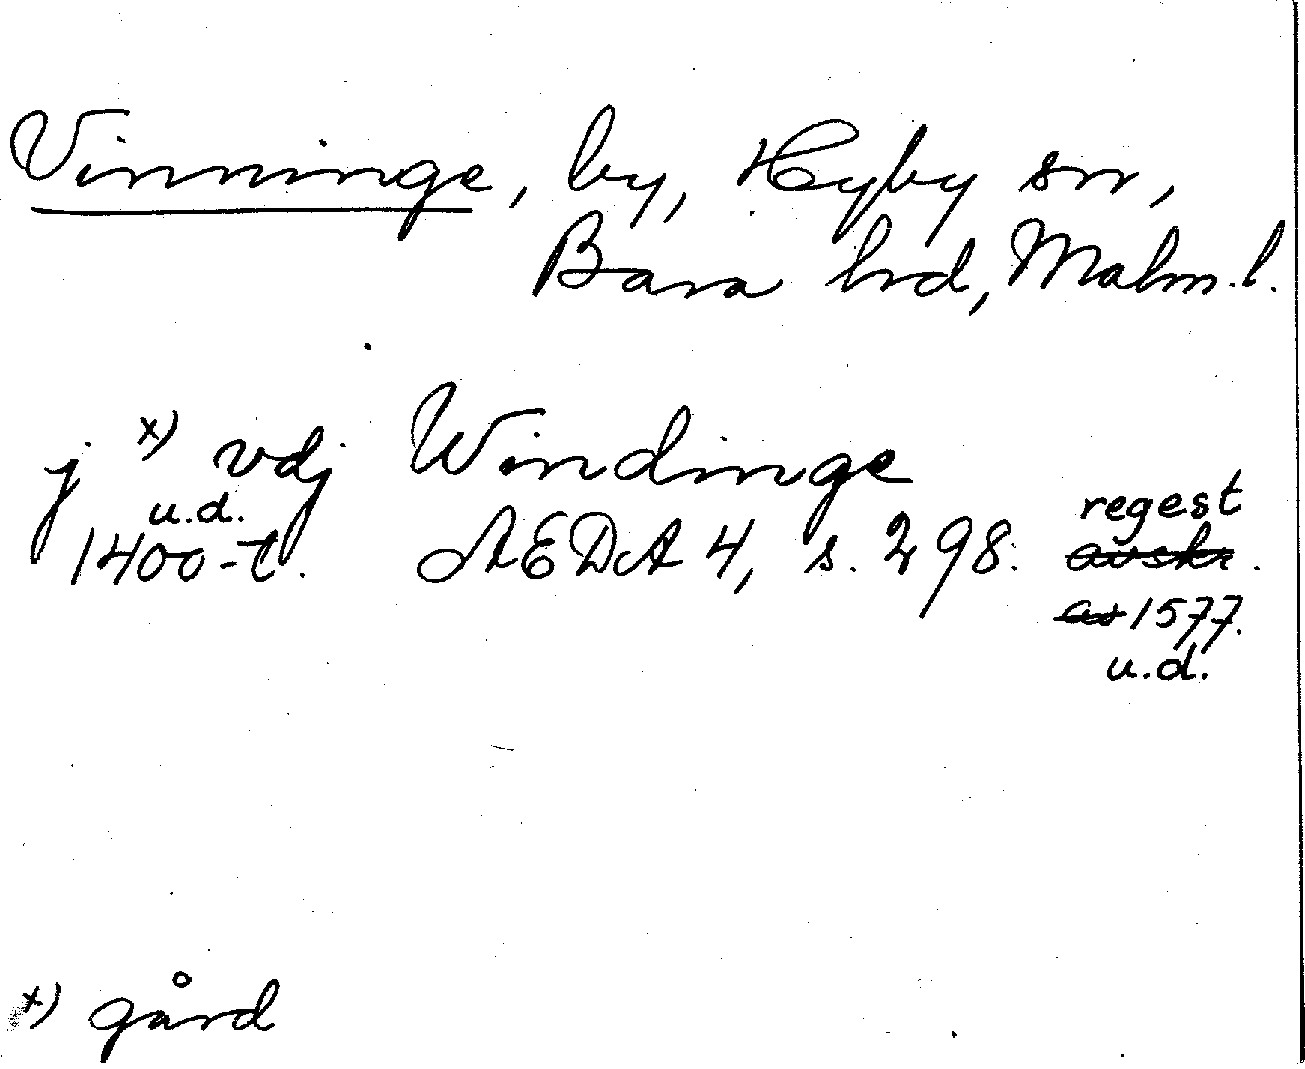 Vinninge, by, Hyby sn,
Bara hrd, Malm.l.
j x) vdj Windinge
u.d.
1400-t. ÆDA 4, s. 298. regest
avskr.
av 1577.
u.d.
x) gård